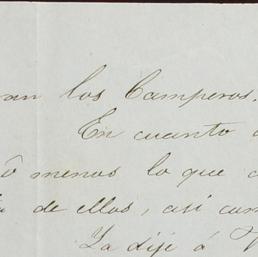 an los Camperos.
En cuanto
ó menos lo que
de ellos, así com
Ya dije á V